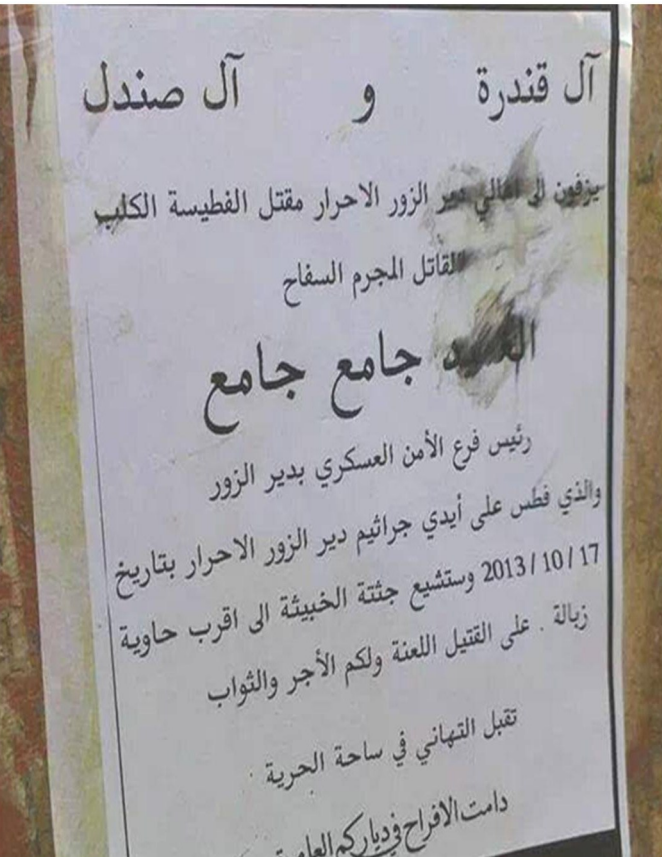 آل قندرة و آل صندل
يزفون الى اهالي دير الزور الاحرار مقتل الفطيسة الكلب
القاتل المجرم السفاح
العميد جامع جامع
رئيس فرع الأمن العسكري بدير الزور
والذي فطس على أيدي جراثيم دير الزور الاحرار بتاريخ
2013/10/17 وستشيع جثتة الخبيثة الى اقرب حاوية
زبالة . على القتيل اللعنة ولكم الأجر والثواب
تقبل التهاني في ساحة الحرية .
دامت الافراح في دياركم العامرة